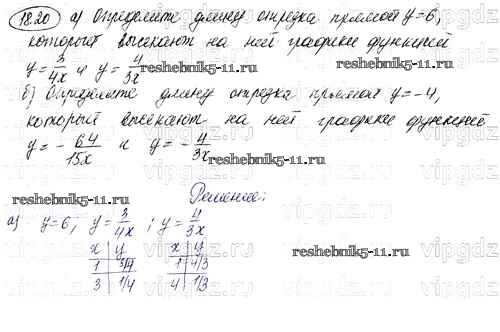 18.20 а) Определите длину отрезка прямой y=6,
который высекают на ней графики функций
y=3/4x и y=4/3x reshebnik5-11.ru reshebnik5-11.ru
б) Определите длину отрезка прямой y=-4,
который высекают на ней графики функций
y=-64/15x и y=-4/3x
reshebnik5-11.ru reshebnik5-11.ru
Решение:
а) y=6, y=3/4x ; y=4/3x
x | y x | y reshebnik5-11.ru
1 | 3/4 1 | 4/3
3 | 1/4 4 | 1/3